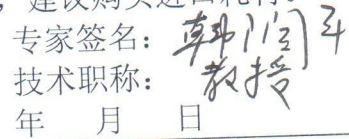 ，建议购买进口耗材
专家签名：韩
技术职称：教授
年 月 日